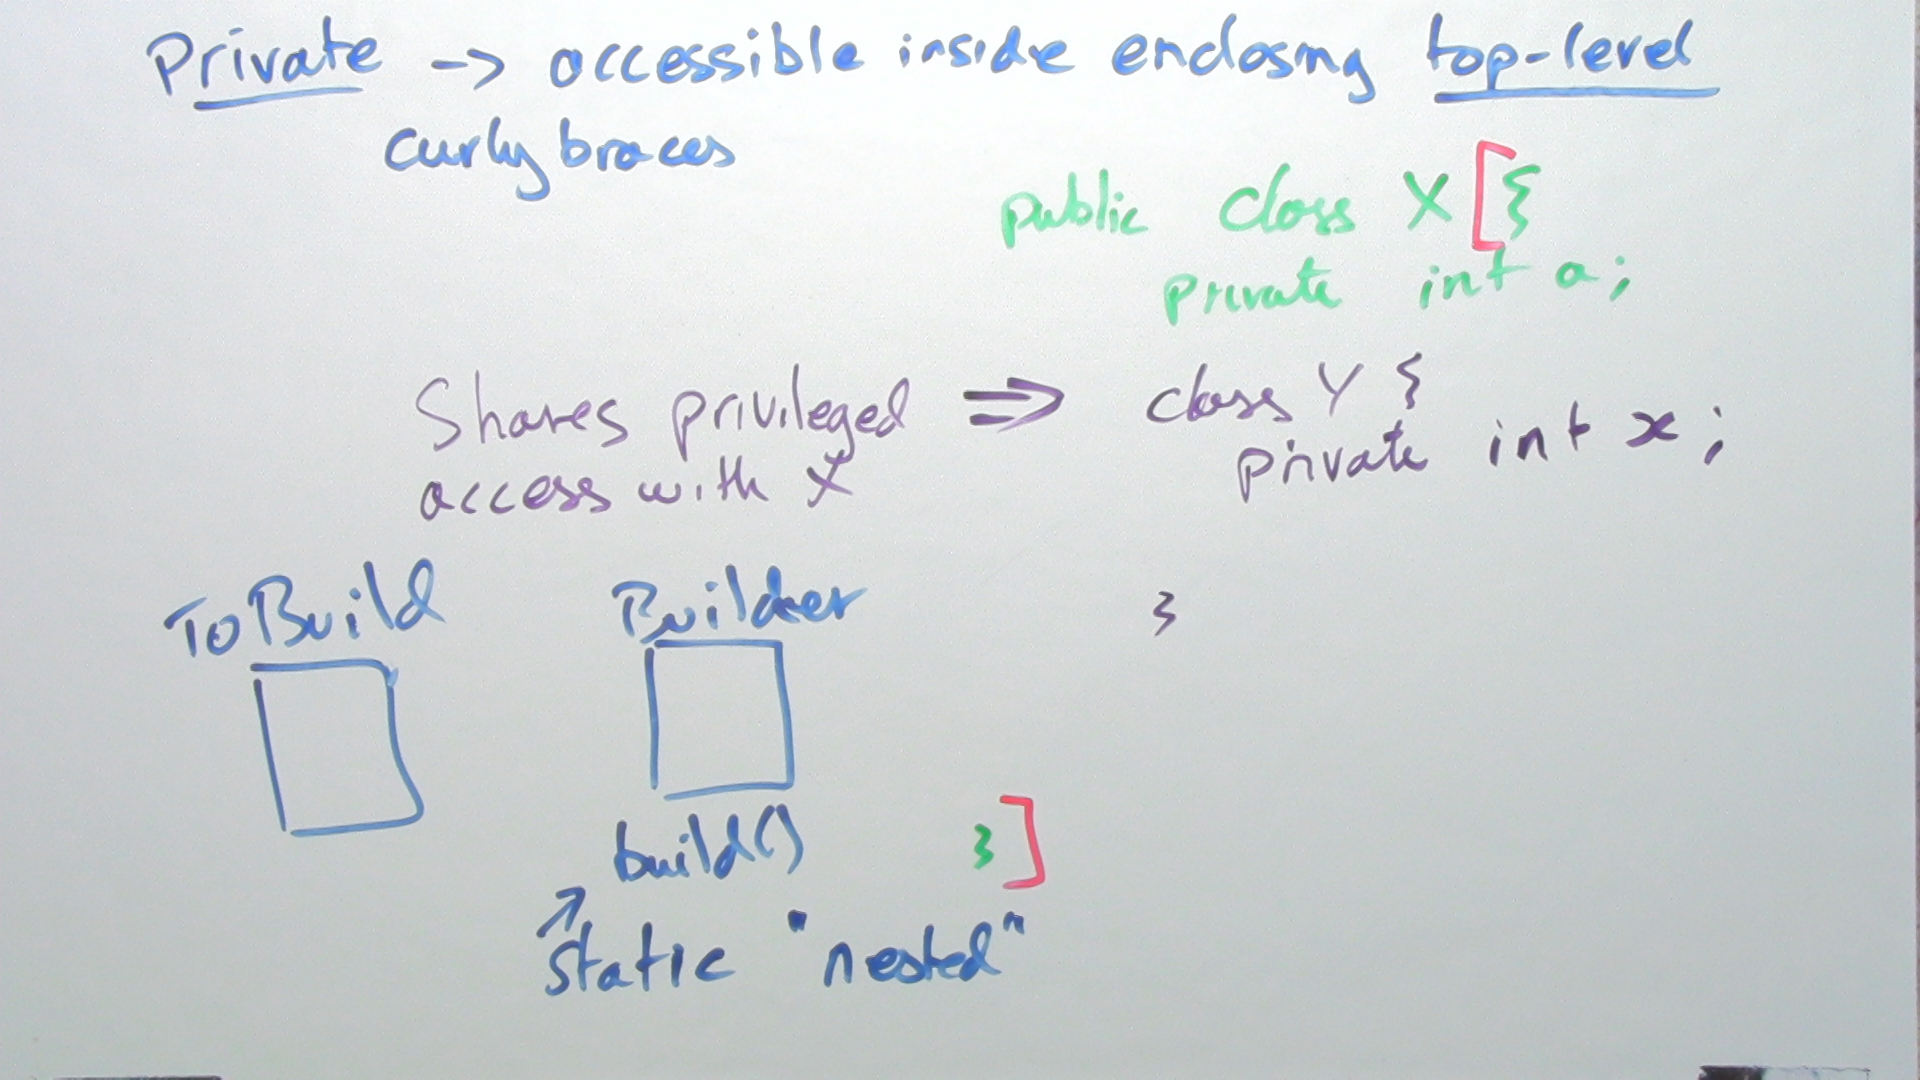 Private -> accessible inside enclosing top-level
curly braces
public class X [{
private int a;
Shares privileged => class Y {
access with X private int x;
ToBuild Builder
}
build() }]
static "nested"